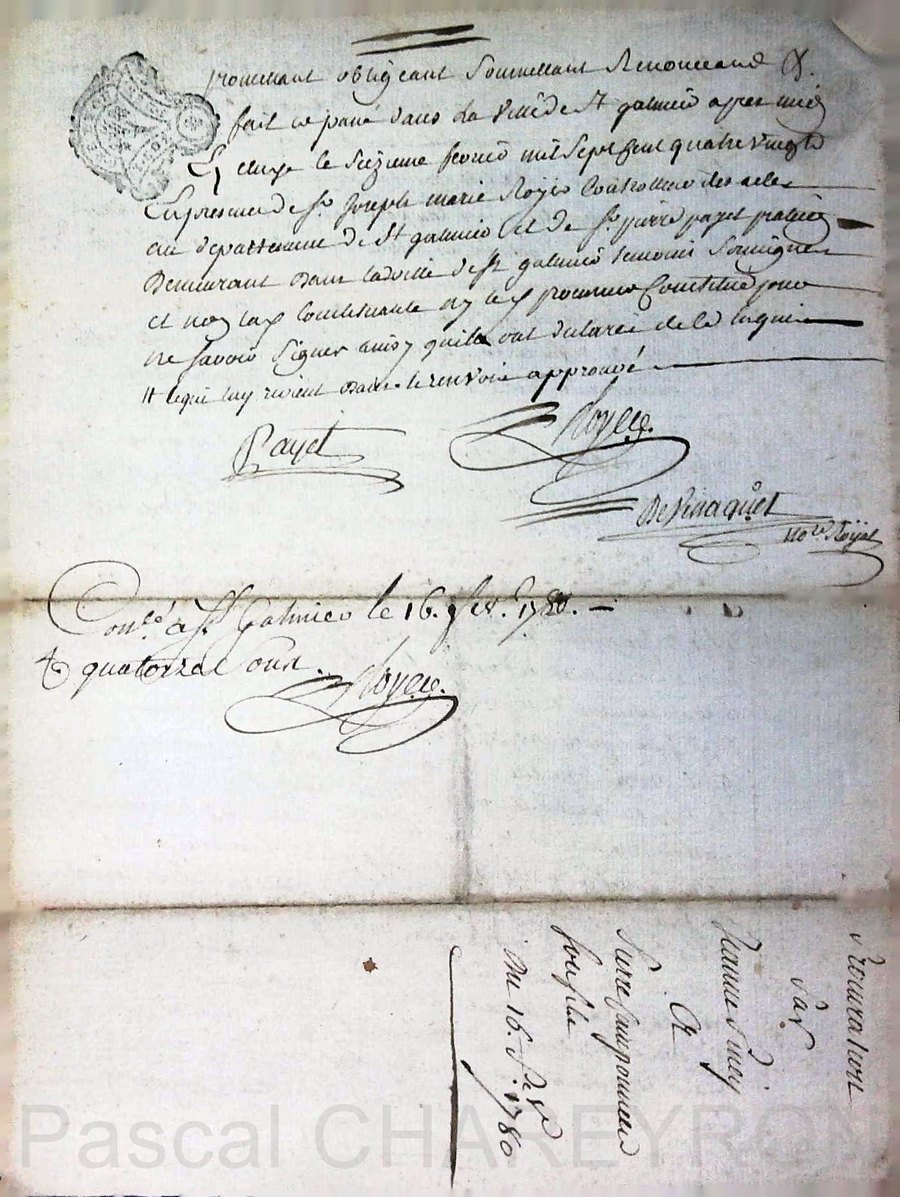 promettant obligeant Soumettant Renonceant &.
fait et passé dans La Ville de St galmier apres midy
Le Seizieme fevrier mil Sept Cent quatre vingts
En presence de Sr. Joseph marie Royer Controlleur des actes
au departement de St galmier et de Sr. pierre payet
Demeurant dans la ville de St galmier temoins Soussignés
et non la Constituante ny le procureur Constitué pour
ne Savoir Signer ainsy quils ont declaré de ce Enquis
dans le renvoi approuvé
Payet
Royer.
No.re Royal
Con.lé a St. Galmier le 16. f.er. 1780.
quatorze Sous.
Royer.
Procuration
par
Jeanne
A
Pierre
Son fils
Du 16. f.er 1780
Pascal CHAREYRON